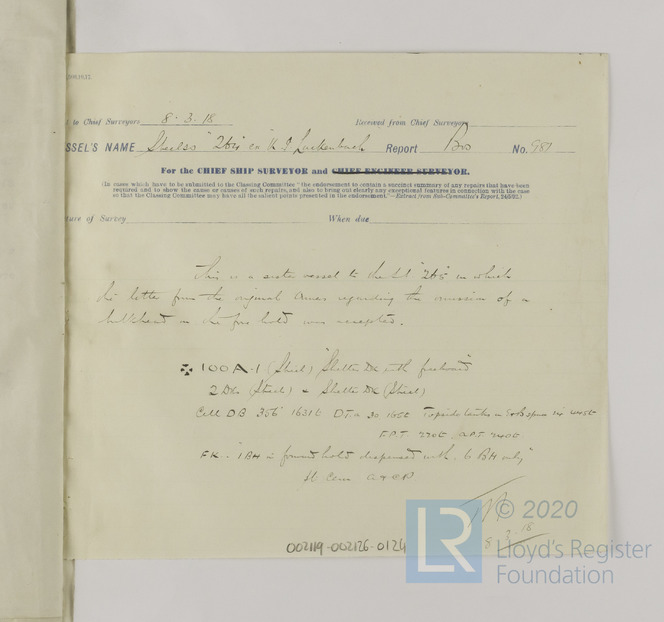 t to Chief Surveyors 8.3.18 Received from Chief Surveyors
SSEL'S NAME Steel ss "264" ex "K I Luckenbach Report Bos No. 981
For the CHIEF SHIP SURVEYOR and CHIEF ENGINEER SURVEYOR.
(In cases which have to be submitted to the Classing Committee "the endorsement to contain a succinct summary of any repairs that have been
required and to show the cause or causes of such repairs, and also to bring out clearly any exceptional features in connection with the case
so that the Classing Committee may have all the salient points presented in the endorsement."—Extract from Sub-Committee's Report,
ture of Survey When due
This is a sister vessel to the "265 in which
the letter from the original Owners regarding the omission of a
bulkhead in the fore hold was accepted.
✠ 100A-1 (Steel) "Shelter Dk with freeboard"
2 Dks (Steel) & Shelter Dk (Steel)
Cell DB 356' 1631t DTa 30' 165t Topside tanks in
FPT 230t APT 240t
FK. "1 BH in forward hold dispensed with. 6 BH only"
8 3 18
002119-002126-0124
© 2020
LR
Lloyd's Register
Foundation